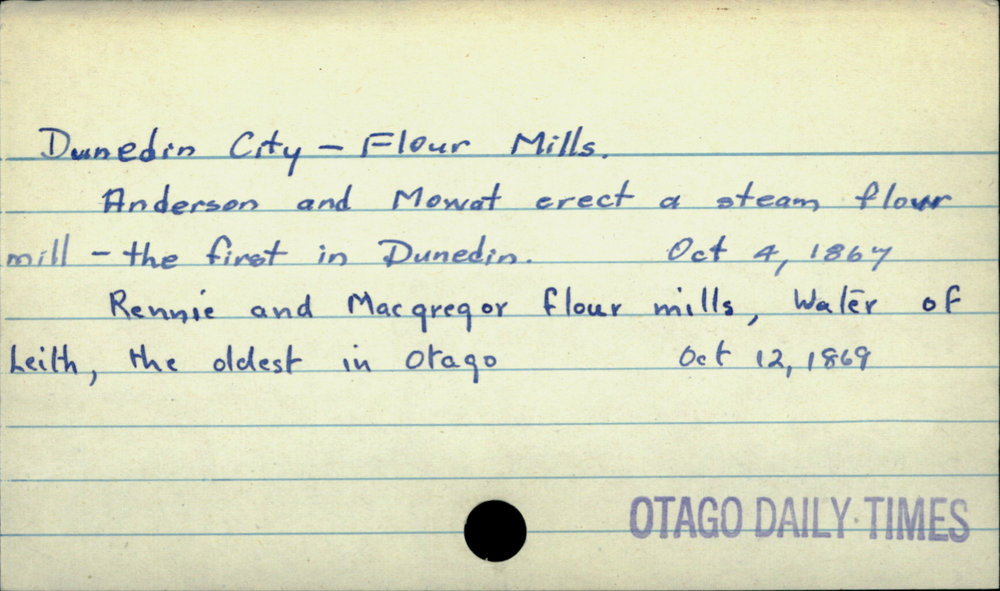 Dunedin City - Flour Mills.
Anderson and Mowat erect a steam flour
mill - the first in Dunedin. Oct 4, 1867
Rennie and Macgregor flour mills, Water of
Leith, the oldest in Otago Oct 12, 1869
OTAGO DAILY TIMES